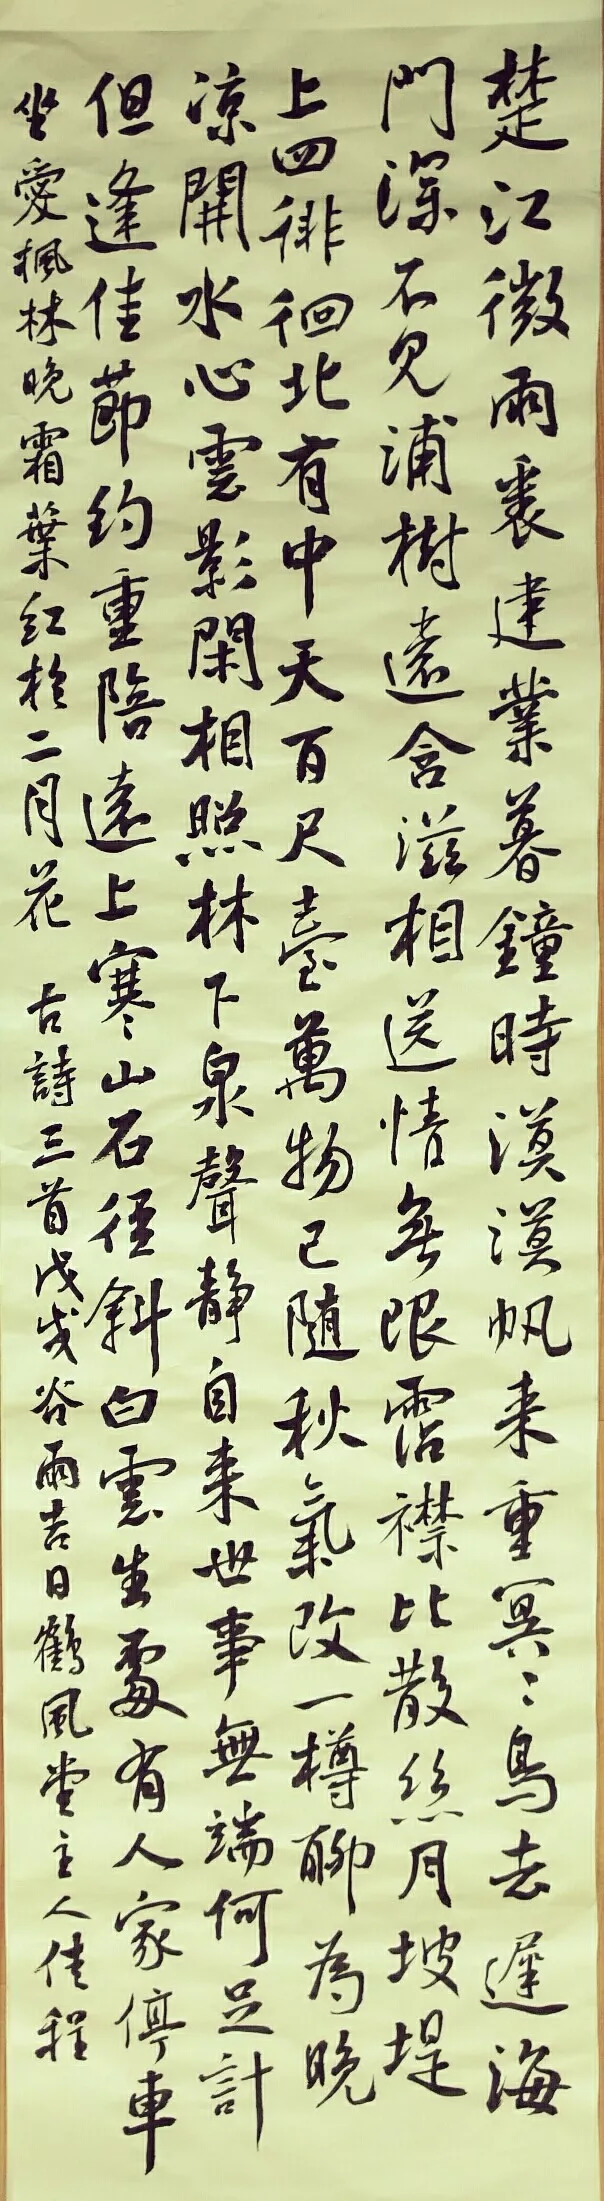 楚江微雨裏建業暮鐘時漠漠帆来重冥〻鳥去遲海
門深不見浦樹遠含滋相送情無限霑襟比散絲月坡堤
上四徘徊北有中天百尺臺萬物已随秋氣改一樽聊為晚
凉開水心雲影閑相照林下泉聲靜自来世事無端何足計
但逢佳節約重陪遠上寒山石徑斜白雲生處有人家停車
坐愛楓林晚霜葉红於二月花 古詩三首戊戌谷雨吉日鶴風堂主人佳程